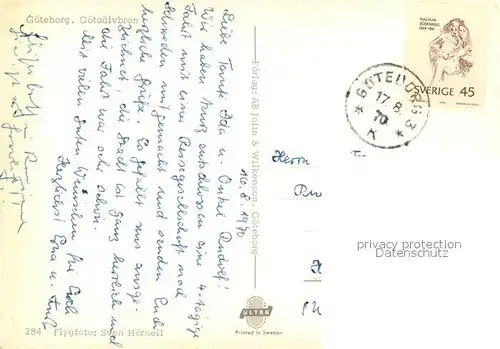 Göteborg. Götaälvbron
16.8.1970
Liebe Tante Ida u. Onkel Rudolf!
Wir haben kurz entschlossen eine 4-tägige
Fahrt mit einer Reisegesellschaft nach
Schweden mitgemacht und senden Euch
herzliche Grüße. Es gefällt uns ausge-
zeichnet, die Stadt ist ganz herrlich und
die Fahrt war sehr schön.
Mit vielen guten Wünschen für Euch
Herzlichst Erna und
284. Flygfoto: Sven Hörnell
Förlag: AB Jolin & Wilkenson, Göteborg
ULTRA
Printed in Sweden
HJALMAR
SÖDERBERG
1869-1941
SVERIGE 45
GÖTEBORG 3
17.8.
70
K
Herrn
privacy protection
Datenschutz